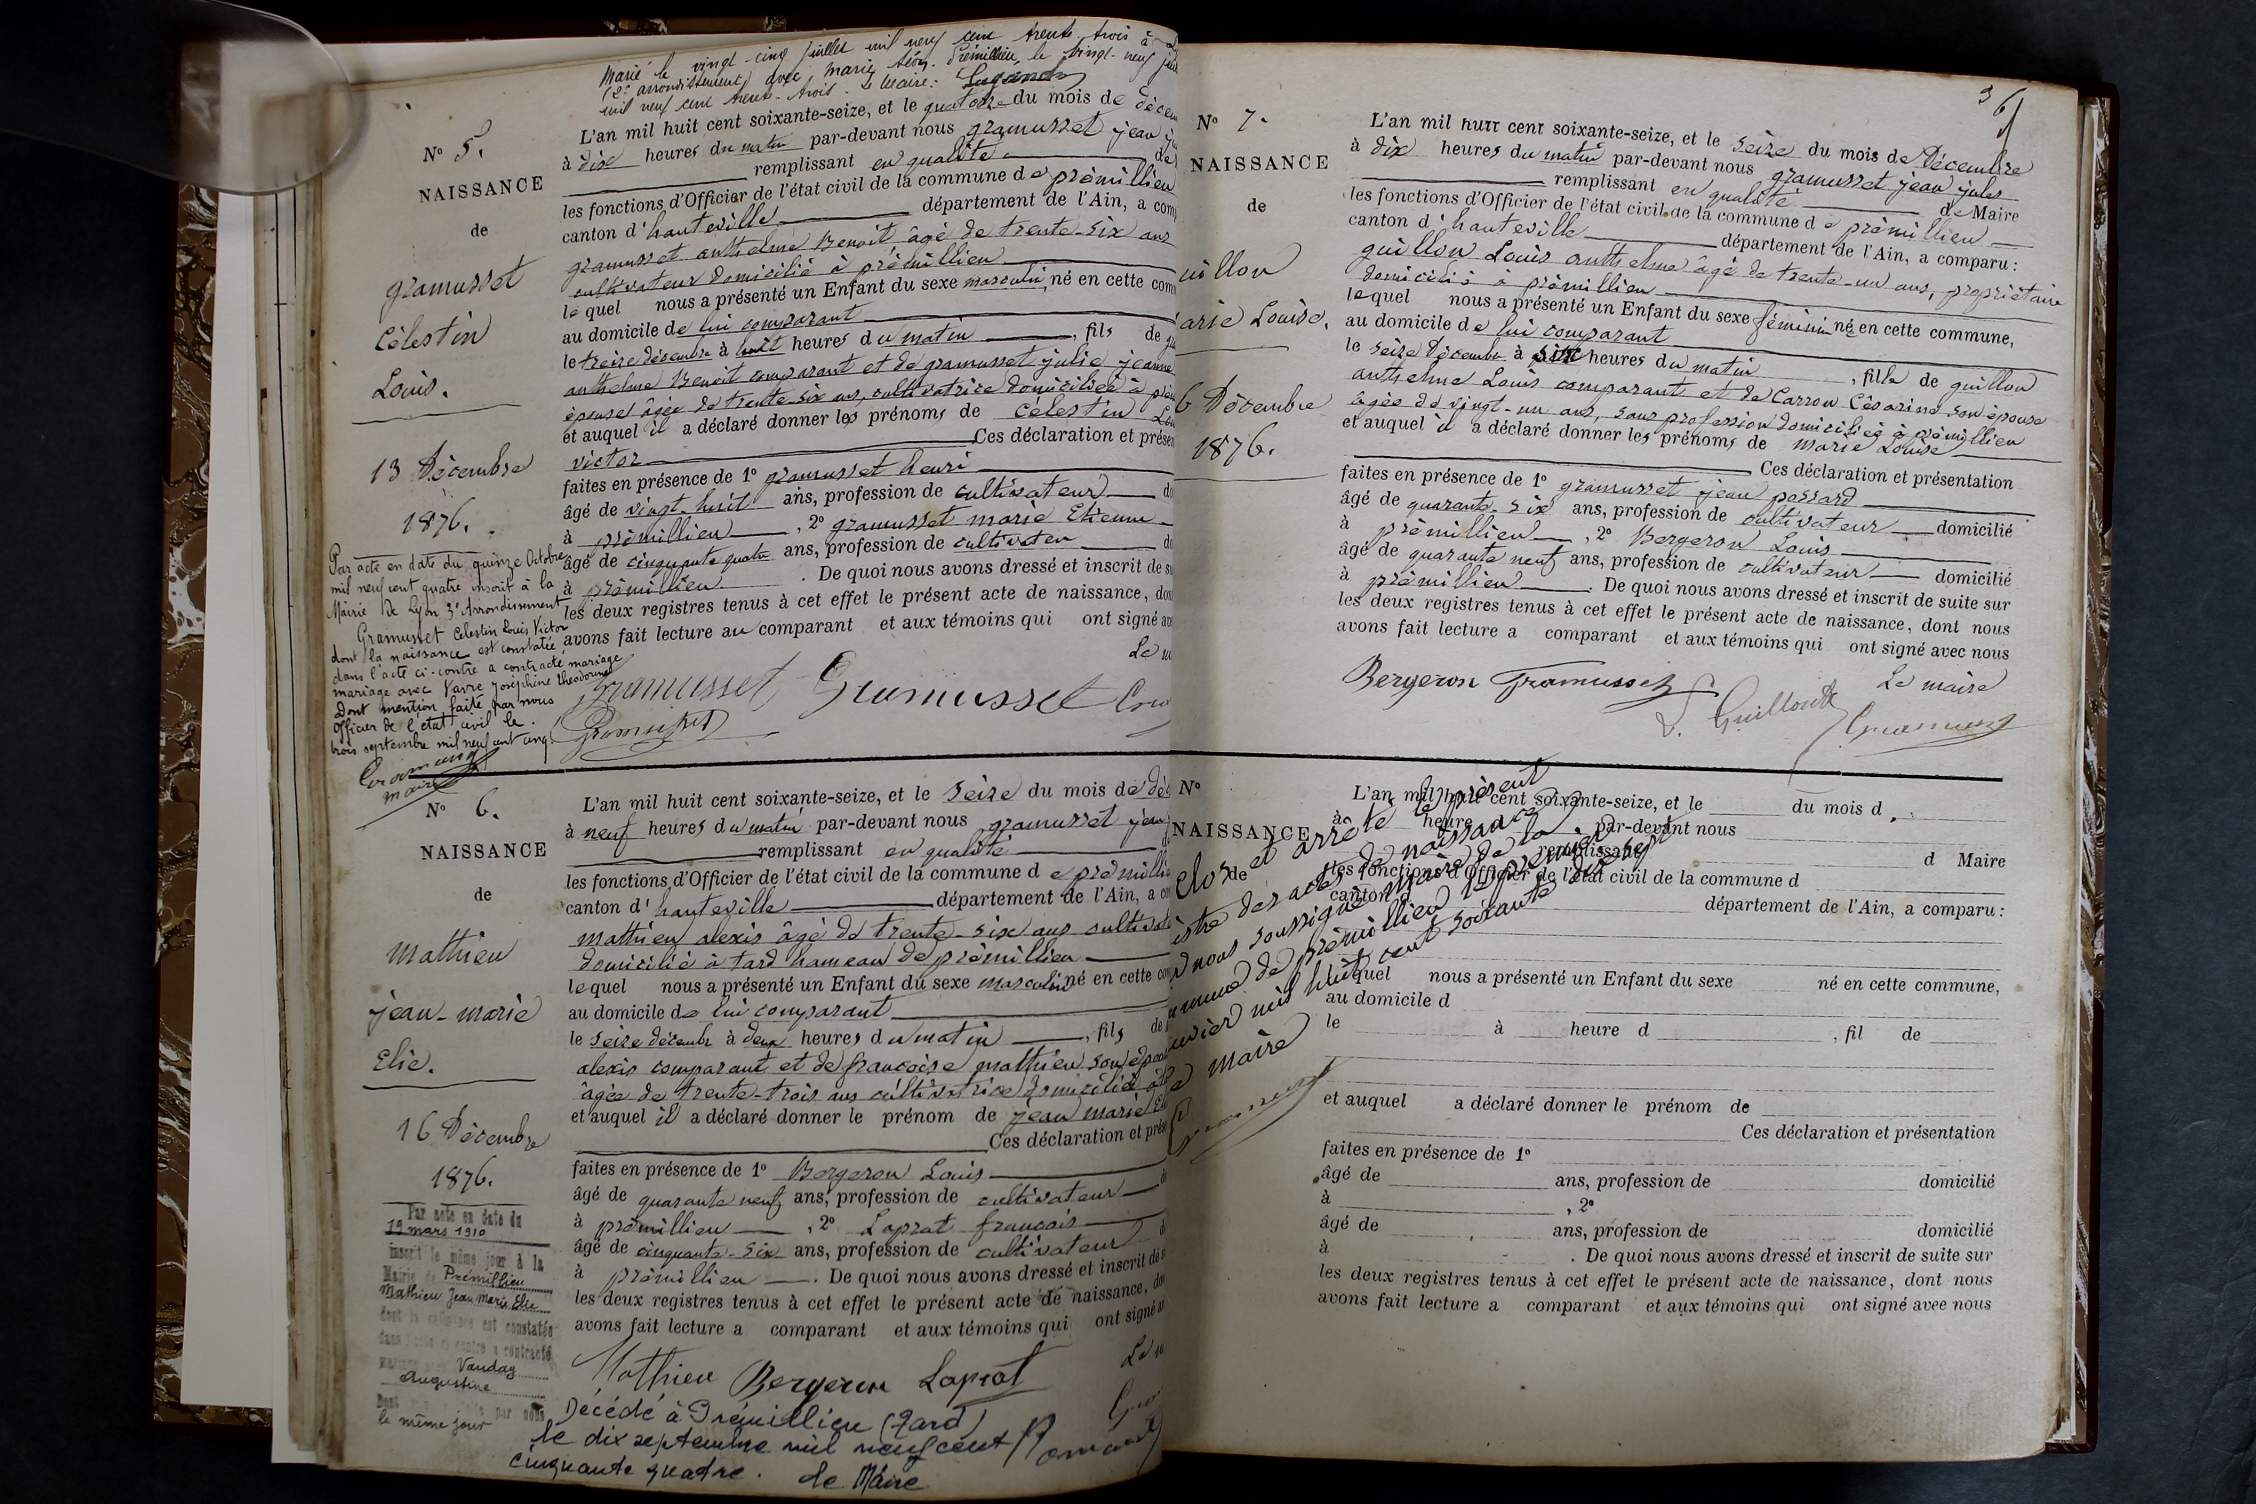 Marié le vingt-cinq juillet mil neuf cent trente-trois à
(2e arrondissement) avec Marie Prémillieu, le vingt-neuf
mil neuf cent trente-trois. Le Maire:
No 5.
NAISSANCE
de
gramusset
Célestin
Louis.
13 Décembre
1876.
Par acte en date du quinze Octobre
mil neuf cent quatre inscrit à la
Mairie de Lyon 3e Arrondissement
Gramusset Celestin Louis Victor
dont la naissance est constatée
dans l'acte ci-contre a contracté mariage
mariage avec Favre Joséphine Théodorine
Dont mention faite par nous
Officier de l'état civil le
trois septembre mil neuf cent cinq.
maire
L'an mil huit cent soixante-seize, et le quatorze du mois de décem
à dix heures du matin par-devant nous gramusset jean
remplissant en qualité de
les fonctions d'Officier de l'état civil de la commune de prèmillieu
canton d'hauteville département de l'Ain, a com
gramusset anthelme Benoit âgé de trente-six ans
cultivateur domicilié à prèmillieu
lequel nous a présenté un Enfant du sexe masculin, né en cette com
au domicile de lui comparant
le treize décembre à huit heures du matin, fils de
anthelme Benoit comparant et de gramusset julie jeanne
épouse âgée de trente-six ans, cultivatrice domiciliée à prèm
et auquel il a déclaré donner les prénoms de Célestin Lou
victor Ces déclaration et présen
faites en présence de 1o gramusset henri
âgé de vingt-huit ans, profession de cultivateur do
à prèmillieu, 2o gramusset marie Etienne
âgé de cinquante quatre ans, profession de cultivateur do
à prèmillieu. De quoi nous avons dressé et inscrit de su
les deux registres tenus à cet effet le présent acte de naissance, don
avons fait lecture au comparant et aux témoins qui ont signé av
Le m
Gramusset Gramusset
Gramusset
No 6.
NAISSANCE
de
Mathieu
jean-marie
Elie.
16 Décembre
1876.
Par acte en date du
19 mars 1910
inscrit le même jour à la
Mairie de Prémillieu
Mathieu Jean Marie Elie
dont la naissance est constatée
dans l'acte ci-contre a contracté
mariage avec Vauday
Augustine
Dont par nous
le même jour
L'an mil huit cent soixante-seize, et le seize du mois de dé
à neuf heures du matin par-devant nous gramusset jean
remplissant en qualité
les fonctions d'Officier de l'état civil de la commune de prèmillie
canton d'hauteville département de l'Ain, a co
mathieu alexis âgé de trente-six ans cultivat
domicilié à tard hameau de prèmillieu
lequel nous a présenté un Enfant du sexe masculin né en cette co
au domicile de lui comparant
le seize décembre à deux heures du matin, fils de
alexis comparant et de françoise mathieu son épou
âgée de trente-trois ans cultivatrice domiciliée à
et auquel il a déclaré donner le prénom de jean marie
Ces déclaration et prése
faites en présence de 1o Bergeron Louis
âgé de quarante neuf ans, profession de cultivateur d
à prèmillieu, 2o Laprat françois
âgé de cinquante-six ans, profession de cultivateur d
à prèmillieu. De quoi nous avons dressé et inscrit de s
les deux registres tenus à cet effet le présent acte de naissance, do
avons fait lecture a comparant et aux témoins qui ont signé a
Le m
Mathieu Bergeron Laprat
Décédé à Prémillieu (Tard)
le dix septembre mil neuf cent
cinquante quatre. Le Maire
36
No 7.
NAISSANCE
de
uillon
arie Louise.
6 Décembre
1876.
L'an mil huit cent soixante-seize, et le seize du mois de Décembre
à dix heures du matin par-devant nous gramusset jean jules
remplissant en qualité de Maire
les fonctions d'Officier de l'état civil de la commune de prèmillieu
canton d'hauteville département de l'Ain, a comparu:
guillon Louis anthelme âgé de trente-un ans, propriétaire
domicilié à prèmillieu
lequel nous a présenté un Enfant du sexe féminin né en cette commune,
au domicile de lui comparant
le seize Décembre à six heures du matin, fille de guillon
anthelme Louis comparant et de Carron Césarine son épouse
âgée de vingt-un ans, sans profession domiciliée à prèmillieu
et auquel il a déclaré donner les prénoms de Marie Louise
Ces déclaration et présentation
faites en présence de 1o gramusset jean possard
âgé de quarante-six ans, profession de cultivateur domicilié
à prèmillieu, 2o Bergeron Louis
âgé de quarante neuf ans, profession de cultivateur domicilié
à prèmillieu. De quoi nous avons dressé et inscrit de suite sur
les deux registres tenus à cet effet le présent acte de naissance, dont nous
avons fait lecture a comparant et aux témoins qui ont signé avec nous
Le maire
Bergeron Gramusset
L. Guillon
No
NAISSANCE
de
L'an mil huit cent soixante-seize, et le du mois d
à heure par-devant nous
remplissant d Maire
les fonctions d'Officier de l'état civil de la commune d
canton d département de l'Ain, a comparu:
lequel nous a présenté un Enfant du sexe né en cette commune,
au domicile d
le à heure d, fil de
et auquel a déclaré donner le prénom de
Ces déclaration et présentation
faites en présence de 1o
âgé de ans, profession de domicilié
à, 2o
âgé de ans, profession de domicilié
à. De quoi nous avons dressé et inscrit de suite sur
les deux registres tenus à cet effet le présent acte de naissance, dont nous
avons fait lecture a comparant et aux témoins qui ont signé avec nous
clos et arrêté le présent
istre des actes de naissance
nous soussigné maire de la
mmune de prèmillieu le premier
nvier mil huit cent soixante dix sept
maire